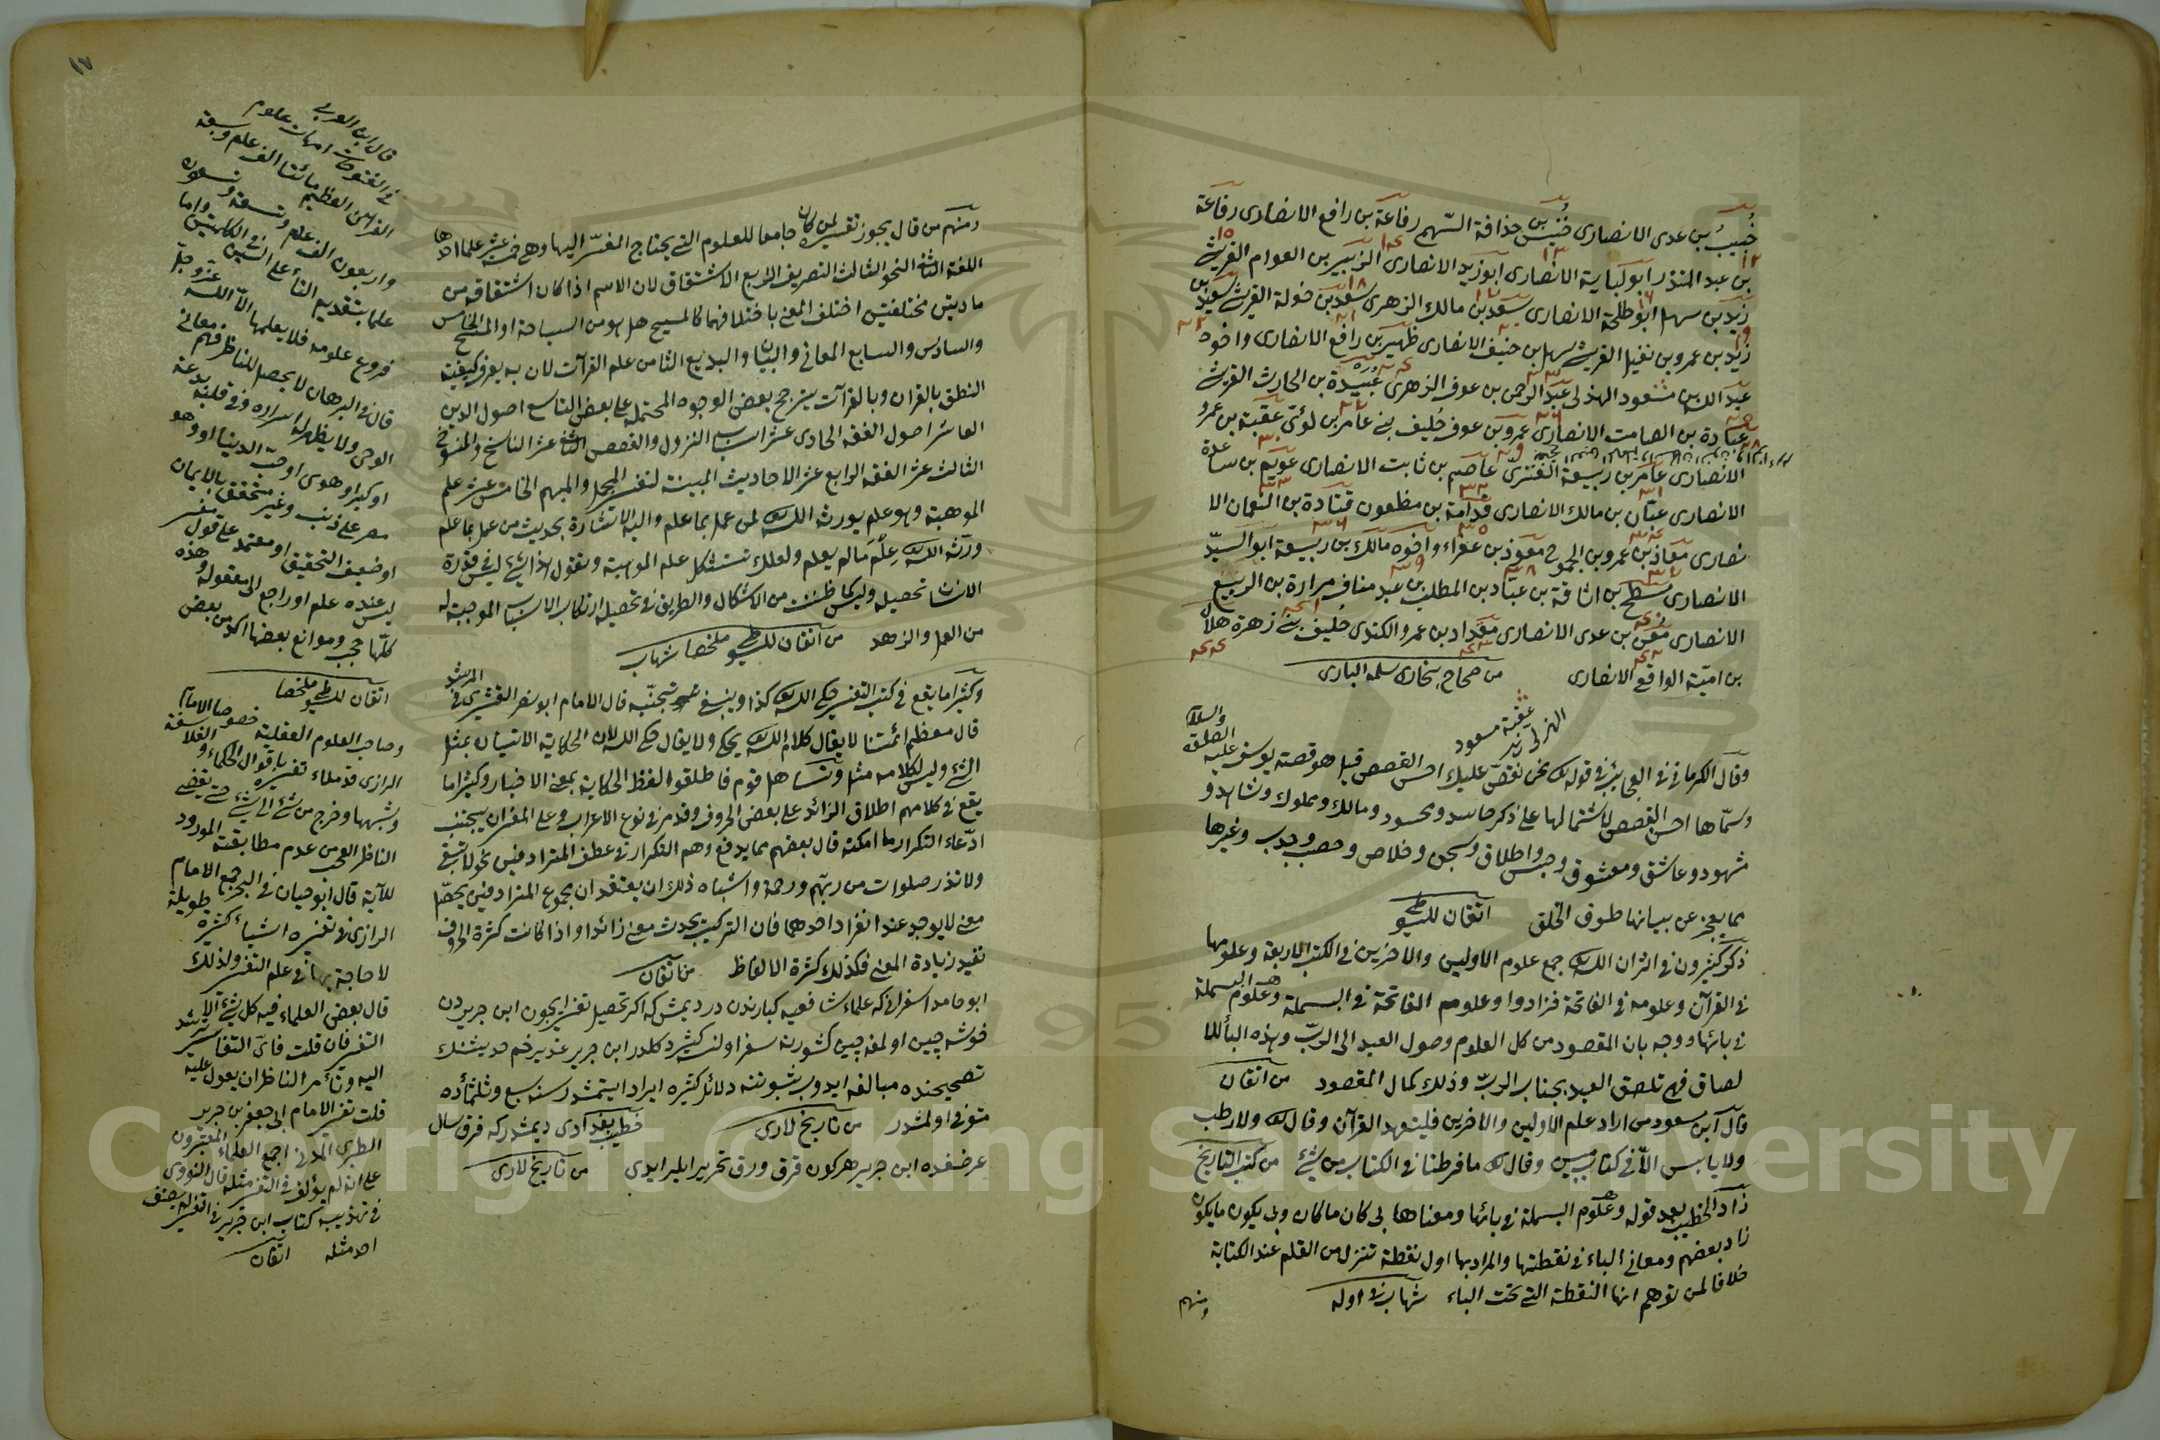 خُبيبُ بن عدى الانصارى خُنَيس بن حذافة السّهم رفاعة بن رافع الانصارى رفاعة
بن عبد المنذر ابو لبابة الانصارى ابو زيد الانصارى الزبير بن العوام القريشى
زيد بن سهل ابو طلحة الانصارى سعد بن مالك الزهرى سعد بن خولة القريشى سعيد بن
زيد بن عمرو بن نفيل القريشى سهل بن حنيف الانصارى ظهير بن رافع الانصارى واخوه
عبد الله بن مسعود الهذلى عبد الرحمن بن عوف الزهرى عُبيدة بن الحارث القريشى
عبادة بن الصامت الانصارى عمرو بن عوف حُليف بنى عامر بن لوئى عقبة بن عمرو
الانصارى عامر بن ربيعة العنزى عاصم بن ثابت الانصارى عويم بن ساعدة
الانصارى عتبان بن مالك الانصارى قدامة بن مظعون قتادة بن النعمان الا
نصارى معاذ بن عمرو بن الجموح معوذ بن عفراء واخوه مالك بن ربيعة ابو السيّد
الانصارى مسطح بن اثاثة بن عباد بن المطلب بن عبد مناف مرارة بن الربيع
الانصارى معن بن عدى الانصارى مقداد بن عمرو الكندى حُليف بنى زهرة هلال
بن اميّة الواقعى الانصارى من صحاح بخارى سلمه البارى
وقال الكرمانى فى العجائب فى قوله تعالى نحن نقصّ عليك احسن القصص قيل هو قصة يوسف عليه الصلوة والسلام
وسمّاها احسن القصص لاشتمالها على ذكر حاسد ومحسود ومالك ومملوك وشاهد و
مشهود وعاشق ومعشوق وحبس واطلاق وسجن وخلاص وخصب وجدب وغيرها
مما يعجز عن بيانها طوق الخلق اتقان للسيوطى
ذكر كثيرون فى اثران الله تعالى جمع علوم الاولين والاخرين فى الكتب الاربعة وعلومها
فى القرآن وعلومه فى الفاتحة فزادوا وعلوم الفاتحة فى البسملة وعلوم البسملة
فى بائها ووجه بان المقصود من كل العلوم وصول العبد الى الربّ وهذه الباء للا
لصاق فهى تلصق العبد بجناب الربّ وذلك كمال المقصود من اتقان
قال ابن مسعود من اراد علم الاولين والاخرين فليتعهد القرآن وقال تعالى ولا رطب
ولا يابس الاّ فى كتاب مبين وقال تعالى ما فرطنا فى الكتاب من شئ من كتب التاريخ
زاد الخطيب بعد قوله وعلوم البسملة فى بائها ومعناها بى كان ما كان وبى يكون ما يكون
زاد بعضهم ومعانى الباء فى نقطتها والمراد بها اول نقطة تنزل من القلم عند الكتابة
خلافا لمن توهم انها النقطة التى تحت الباء شهاب فى اوله
ومنهم
١٧
ومنهم من قال يجوز تفسيره لمن كان جامعا للعلوم التى يحتاج المفسّر اليها وهى خمسة عشر علما احدها
اللغة الثانى النحو الثالث التصريف الرابع الاشتقاق لان الاسم اذا كان اشتقاقه من
مادتين مختلفتين اختلف المعنى باختلافهما كالمسيح هل هو من السياحة او المسح الخامس
والسادس والسابع المعانى والبيان والبديع الثامن علم القرآت لان به يعرف كيفية
النطق بالقران وبالقرآت يترجح بعض الوجوه المحتملة على بعض التاسع اصول الدين
العاشر اصول الفقه الحادى عشر اسباب النزول والقصص الثانى عشر الناسخ والمنسوخ
الثالث عشر الفقه الرابع عشر الاحاديث المبينة لتفسير المجمل والمبهم الخامس عشر علم
الموهبة وهو علم يورثه الله تعالى لمن عمل بما علم واليه الاشارة بحديث من عمل بما علم
ورّثه الله تعالى عِلْمَ مَا لم يعلم ولعلك تستشكل علم الموهبة وتقول هذا شئ ليس فى قدرة
الانسان تحصيله وليس كما ظننت من الاشكال والطريق فى تحصيله ارتكاب الاسباب الموجبة له
من العمل والزهد من اتقان للسيوطى ملخصا شهاب
وكثيرا ما يقع فى كتب التفسير حكى الله تعالى كذا وينبغى تجنّبه قال الامام ابو نصر القشيرى فى المرشد
قال معظم ائمتنا لا يقال كلام الله تعالى يحكى ولا يقال حكى الله لان الحكاية الاتيان بمثل
الشئ وليس لكلامه مثل وتساهل قوم فاطلقوا لفظ الحكاية بمعنى الاخبار وكثيرا ما
يقع فى كلامهم اطلاق الزائد على بعض الحروف وقد مر فى نوع الاعراب وعلى المفسر ان يجتنب
ادّعاء التكرار ما امكنه قال بعضهم مما يدفع وهم التكرار فى عطف المترادفين نحو لا تبقى
ولا تذر صلوات من ربّهم ورحمة واشباه ذلك ان يعتقد ان مجموع المترادفين يحصّل
معنى لا يوجد عند انفراد احدهما فان التركيب يحدث معنى زائدا واذا كانت كثرة الحروف
تفيد زيادة المعنى فكذلك كثرة الالفاظ من اتقان
ابو حامد اسفرائى كه علماء شافعيه كبارندن در ديمش كه اكر تحصيل تفسير ايجون ابن جريردن
خوشه چين او لمغه چين كشورنه سفر اولنسه كثير دكلدر ابن جرير غديرخم حديثنك
تصحيحنده مبالغه ايدوب ثبوتنه دلائل كثيره ايراد ايتمشدر سنه سبع وثلثمأده
متوفى اولمشدر من تاريخ لارى خطيب بغدادى ديمشدر كه قرق سال
عرضنده ابن جرير هر كون قرق ورق تحرير ايلر ايدى من تاريخ لارى
قال ابن العربى
فى الفتوحات امهات علوم
القران العظيم مائتا الف علم وسبعة
واربعون الف علم وتسعة وتسعون
علما بتقديم التاء على السين فى الكلمتين واما
فروع علومه فلا يعلمها الاّ الله عزّ وجلّ
قال فى البرهان لا يحصل للناظر فهم معانى
الوحى ولا يظهر له اسراره وفى قلبه بدعة
او كبر او هوى او حبّ الدنيا او وهو
مصر على ذنب وغير متحقق بالايمان
او ضعيف التحقيق او معتمد على قول مفسر
ليس عنده علم او راجع الى معقوله وهذه
كلّها حجب وموانع بعضها اكد من بعض
اتقان للسيوطى ملخصا
وصاحب العلوم العقلية خصوصا الامام
الرازى قد ملاء تفسيره باقوال الحكماء والفلاسفة
وشبهها وخرج من شئ الى شئ حتى يقضى
الناظر العجب من عدم مطابقة المورود
للآية قال ابو حيان فى البحر جمع الامام
الرازى فى تفسيره اشياء كثيرة طويلة
لا حاجة بها فى علم التفسير ولذلك
قال بعض العلماء فيه كل شئ الا
التفسير فان قلت فاىّ التفاسير ترشد
اليه وتأمر الناظر ان يعول عليه
قلت تفسير الامام ابى جعفر بن جرير
الطبرى الذى اجمع العلماء المعتبرون
على انه لم يؤلف فى التفسير مثله قال النووى
فى تهذيبه كتاب ابن جرير فى التفسير لم يصنف
احد مثله اتقان